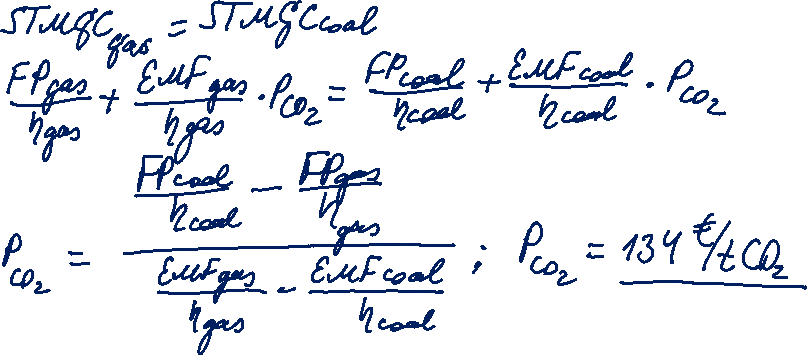 STMGC_gas = STMGC_coal
FP_gas/η_gas + EMF_gas/η_gas · P_CO₂ = FP_coal/η_coal + EMF_coal/η_coal · P_CO₂
P_CO₂ = (FP_coal/η_coal − FP_gas/η_gas) / (EMF_gas/η_gas − EMF_coal/η_coal) ; P_CO₂ = 134 €/tCO₂